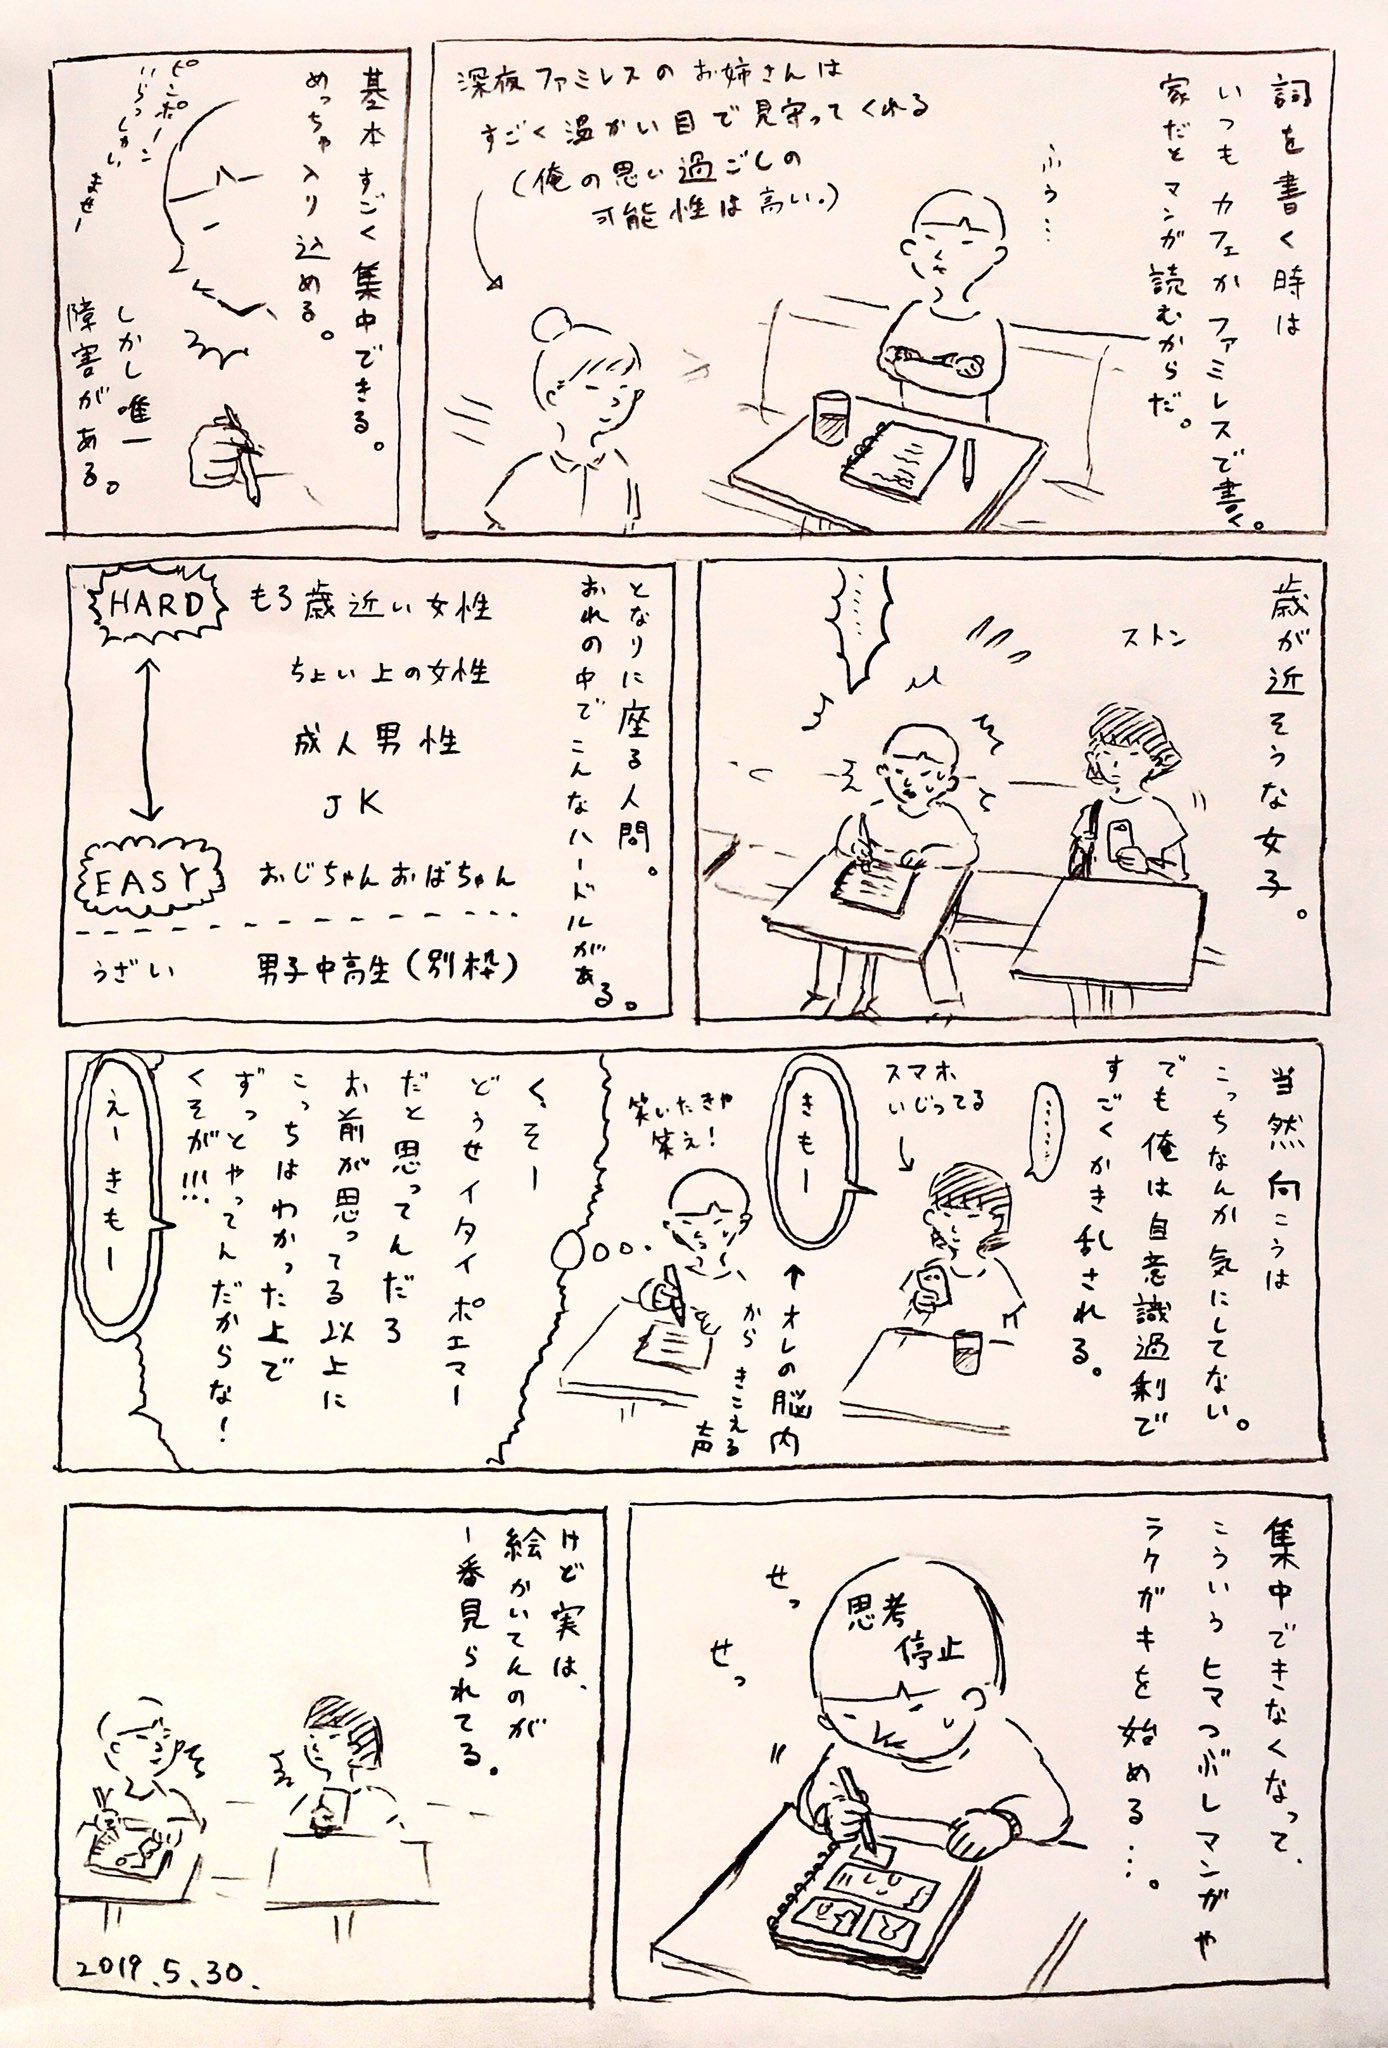 詞を書く時は
いつもカフェかファミレスで書く。
家だとマンガ読むからだ。
ふぅ…
深夜ファミレスのお姉さんは
すごく温かい目で見守ってくれる
(俺の思い過ごしの
可能性は高い。)
基本すごく集中できる。
めっちゃ入り込める。
ピンポーン
いらっしゃいませー
しかし唯一
障害がある。
歳が近そうな女子。
ストン
……
となりに座る人間。
おれの中でこんなハードルがある。
HARD
もろ歳近い女性
ちょい上の女性
成人男性
JK
EASY
おじちゃんおばちゃん
うざい
男子中高生(別枠)
当然向こうは
こっちなんか気にしてない。
でも俺は自意識過剰で
すごくかき乱される。
……
スマホ
いじってる
きもー
↑オレの脳内
からきこえる
声
笑いたきゃ
笑え!
くそー
どうせイタイポエマー
だと思ってんだろ
お前が思ってる以上に
こっちはわかった上で
ずっとやってんだからな!
くそが!!!
えーきもー
集中できなくなって、
こういうヒマつぶしマンガや
ラクガキを始める…。
思考
停止
せっ
せっ
けど実は、
絵かいてんのが
一番見られてる。
2019.5.30.